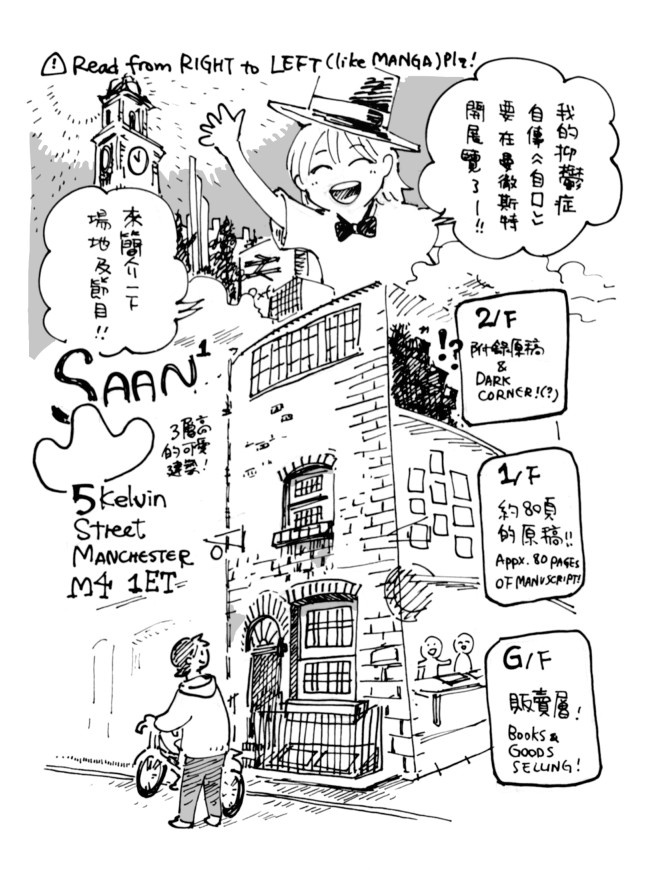 Read from RIGHT to LEFT (like MANGA) Plz!
我的抑鬱症
自傳《自口》
要在曼徹斯特
開展覽了—!!
來簡介一下
場地及節目!!
SAAN1
3層高
的可愛
建築!
5 Kelvin
Street
MANCHESTER
M4 1ET
!?
2/F
附錄原稿
&
DARK
CORNER!(?)
1/F
約80頁
的原稿!!
APPX. 80 PAGES
OF MANUSCRIPT!
G/F
販賣層!
BOOKS &
GOODS
SELLING!